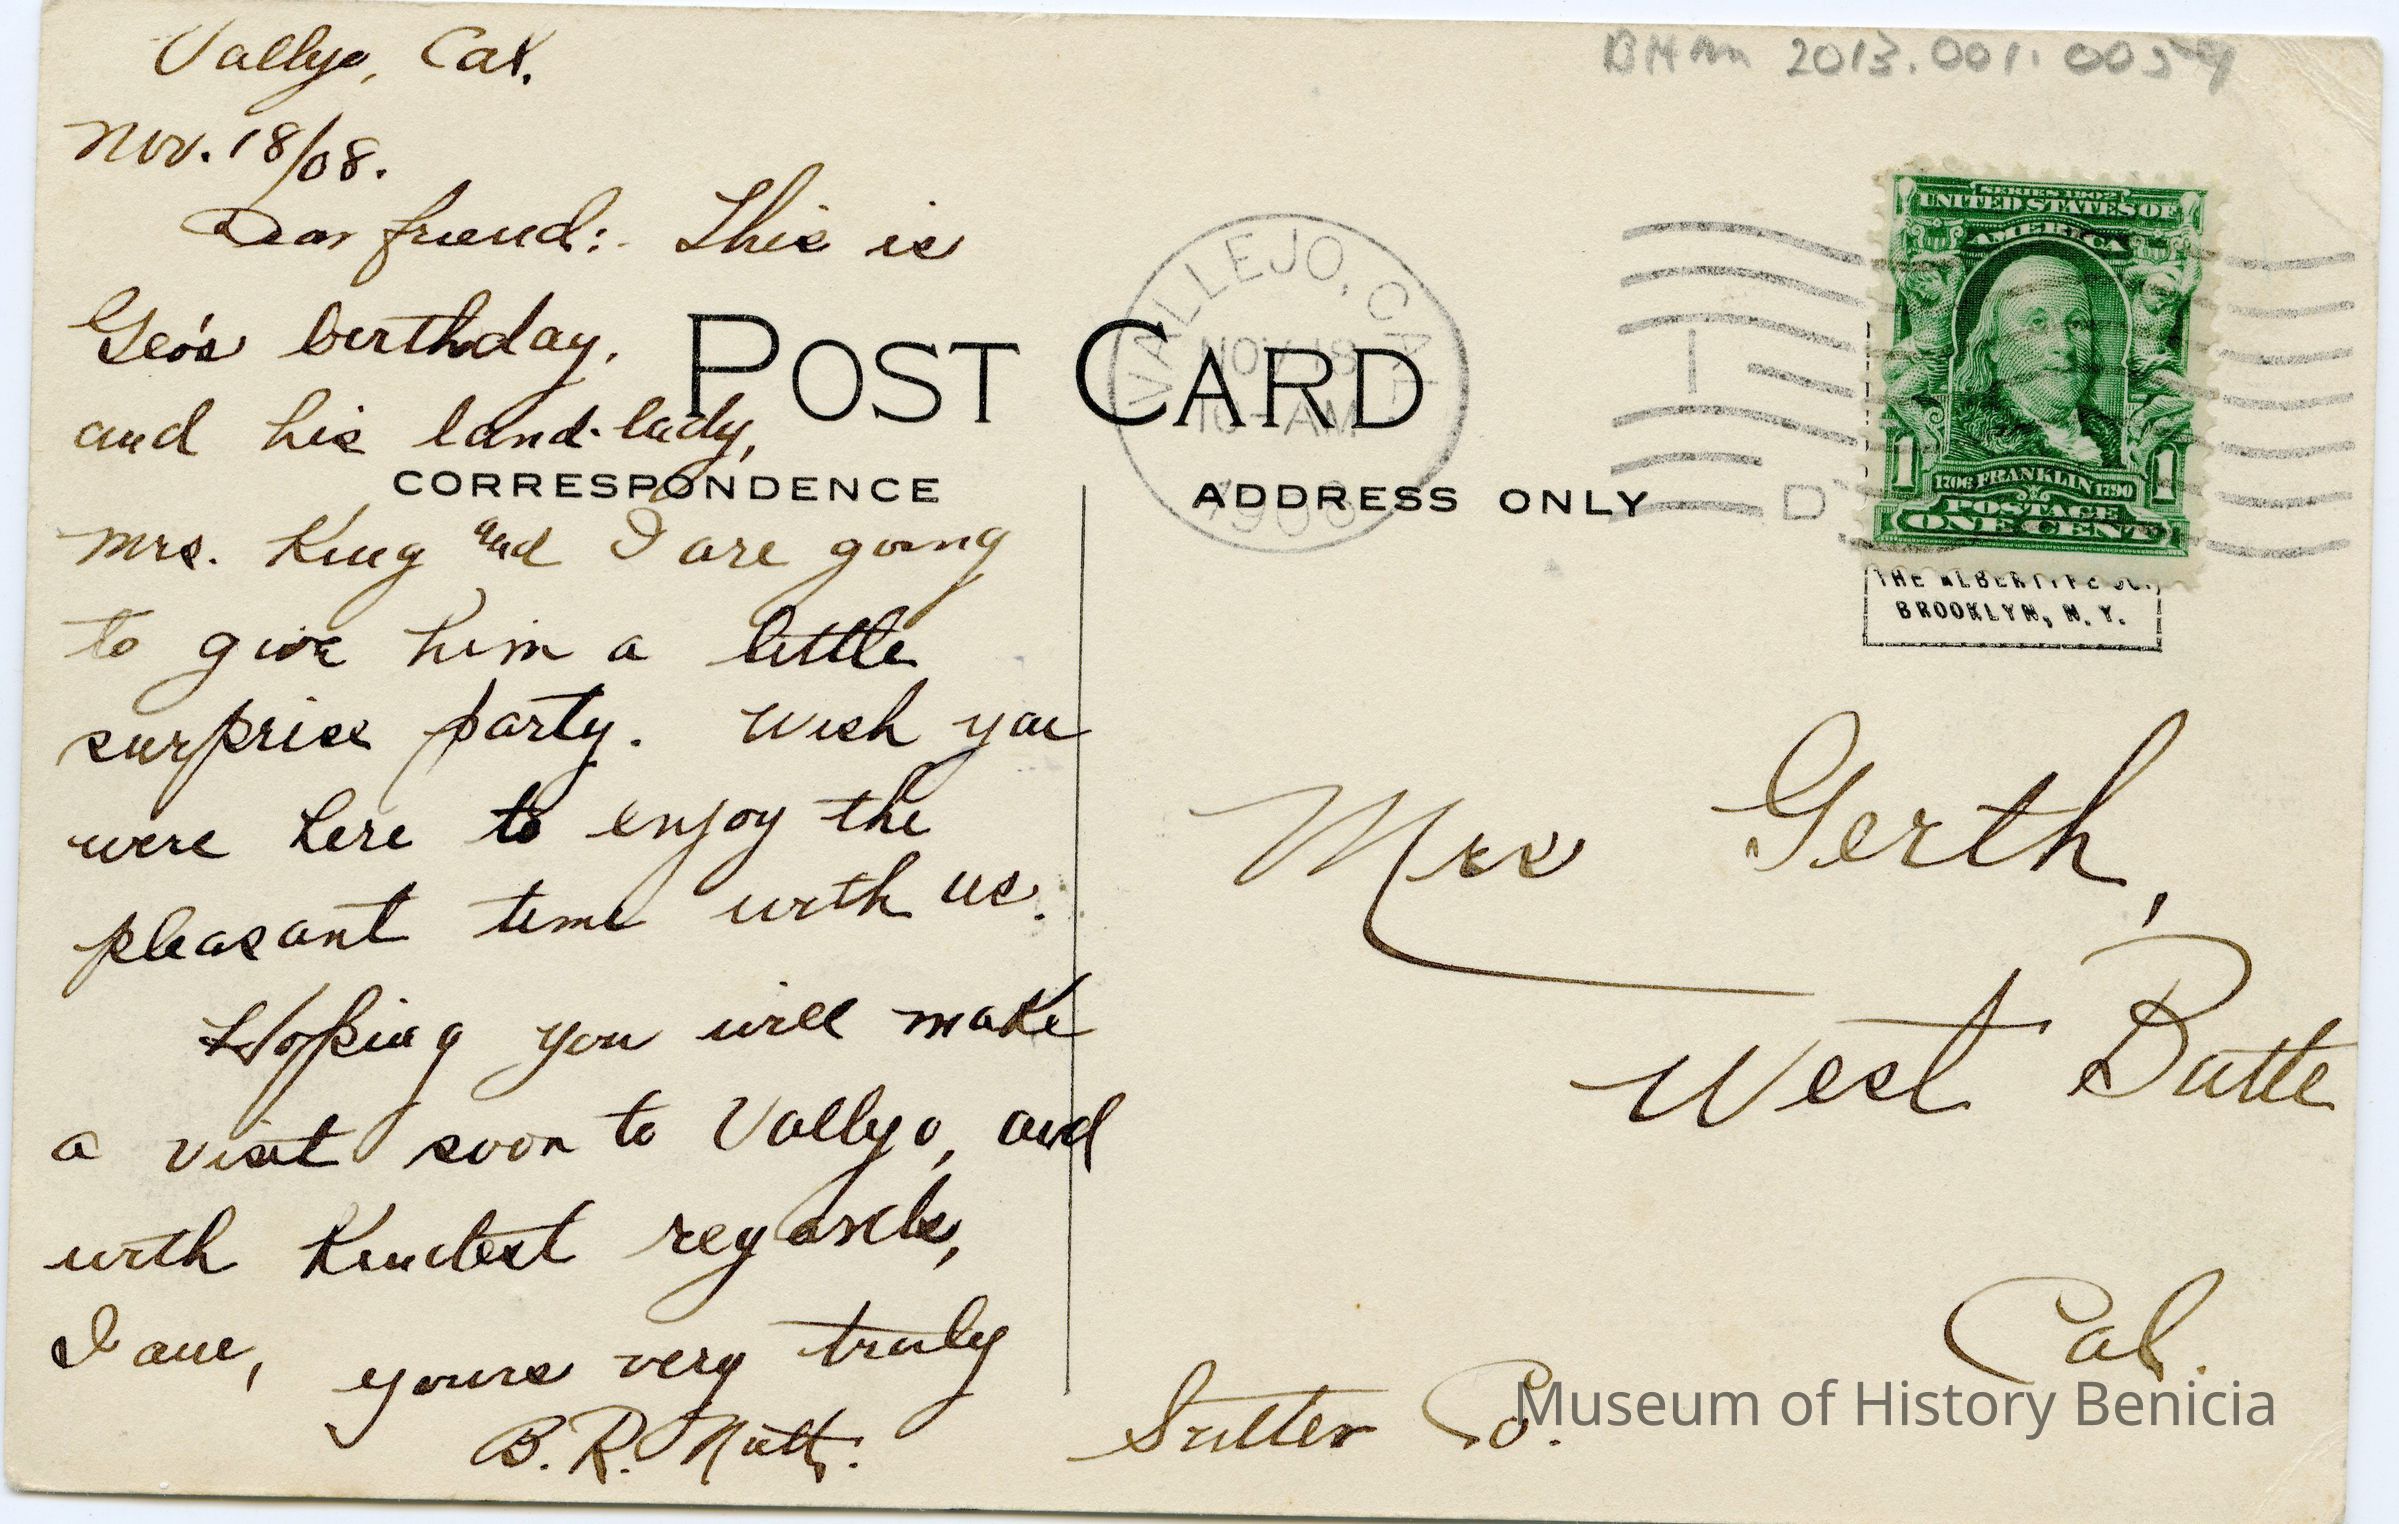 Vallejo, Cal.
Nov. 18/08.
Dear friend: This is
Geo's birthday,
and his land-lady,
Mrs. King and I are going
to give him a little
surprise party. Wish you
were here to enjoy the
pleasant time with us.
Hoping you will make
a visit soon to Vallejo, and
with kindest regards,
I am, yours very truly
B. R. Nutt.
POST CARD
CORRESPONDENCE
ADDRESS ONLY
BHM 2013.001.0054
VALLEJO, CAL.
NOV 18
10-AM
1908
D
SERIES 1902
UNITED STATES OF
AMERICA
1706 FRANKLIN 1790
1 1
POSTAGE
ONE CENT
THE ALBERTYPE CO.,
BROOKLYN, N. Y.
Mrs Gerth,
West Butte
Cal.
Sutter Co.
Museum of History Benicia